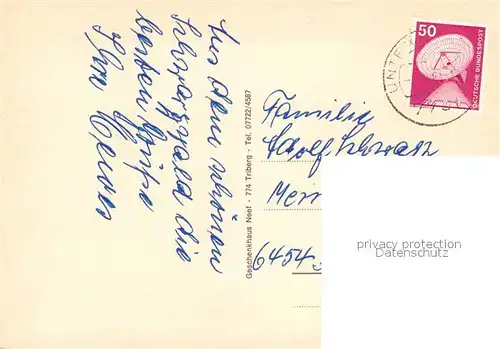 Aus dem schönen
Schwarzwald die
besten Grüße
Ihre
Geschenkhaus Neef - 774 Triberg - Tel. 07722/4587
50
DEUTSCHE BUNDESPOST
Familie
Adolf Schwarz
6454
privacy protection
Datenschutz